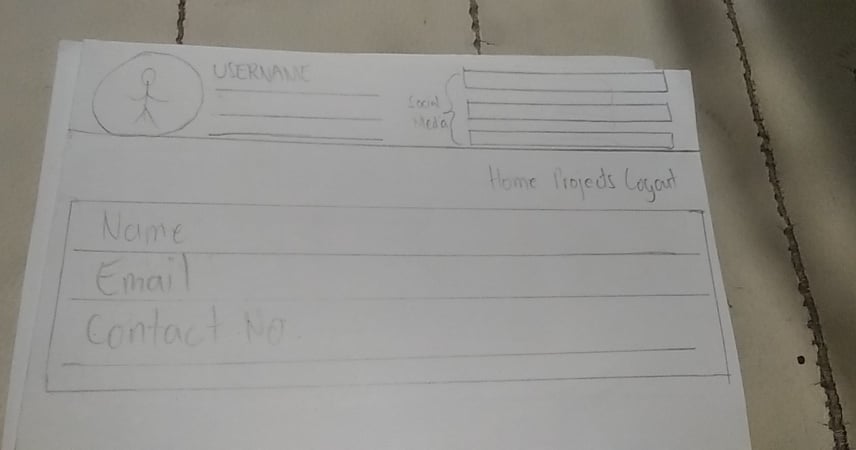 USERNAME
Social
Media
Home Projects Logout
Name
Email
Contact No.